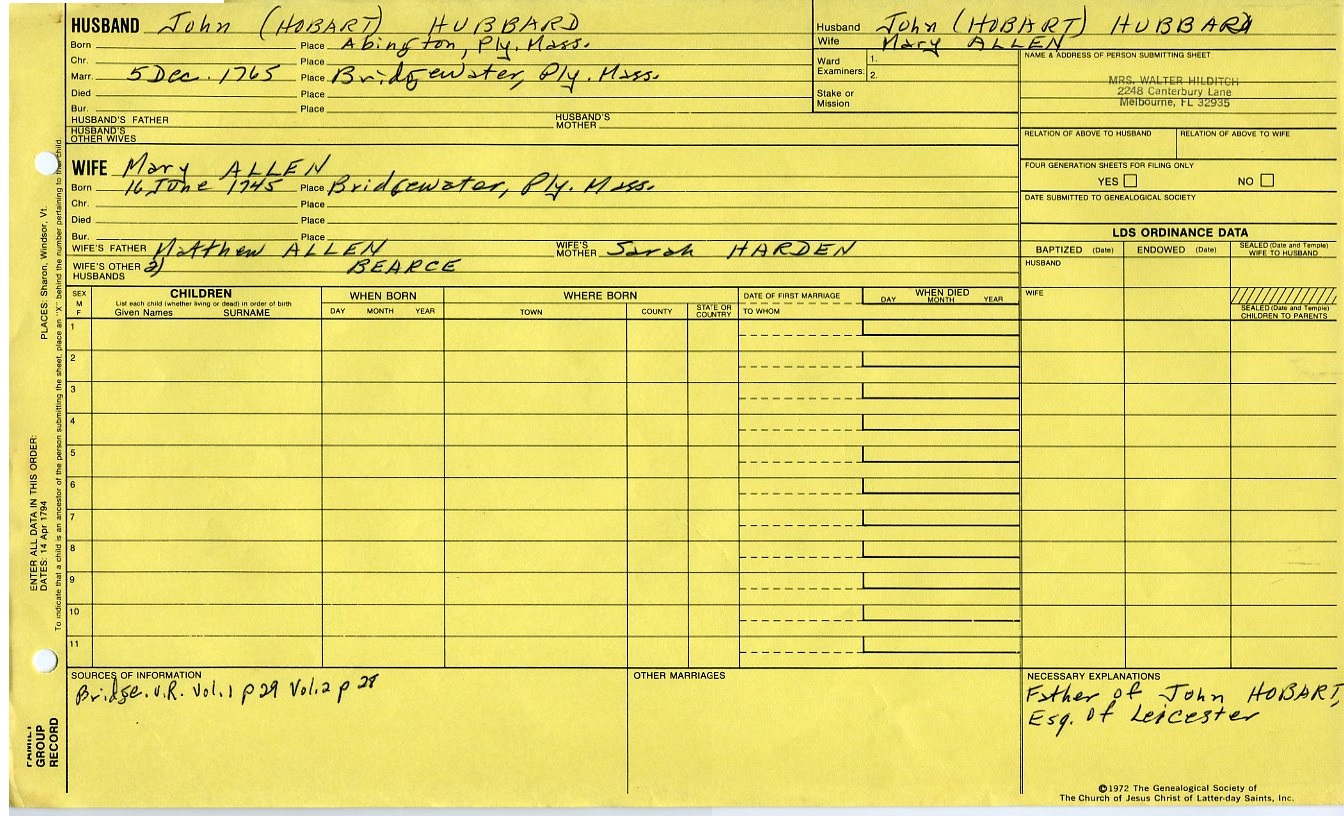 HUSBAND John (HOBART) HUBBARD
Born Place Abington, Ply. Mass.
Chr. Place
Marr. 5 Dec. 1765 Place Bridgewater, Ply. Mass.
Died Place
Bur. Place
HUSBAND'S FATHER HUSBAND'S MOTHER
HUSBAND'S OTHER WIVES
Husband John (HOBART) HUBBARD
Wife Mary ALLEN
Ward Examiners: 1.
2.
Stake or Mission
NAME & ADDRESS OF PERSON SUBMITTING SHEET
MRS. WALTER HILDITCH
2248 Canterbury Lane
Melbourne, FL 32935
RELATION OF ABOVE TO HUSBAND RELATION OF ABOVE TO WIFE
FOUR GENERATION SHEETS FOR FILING ONLY
YES NO
DATE SUBMITTED TO GENEALOGICAL SOCIETY
WIFE Mary ALLEN
Born 16 June 1745 Place Bridgewater, Ply. Mass.
Chr. Place
Died Place
Bur. Place
WIFE'S FATHER Matthew ALLEN WIFE'S MOTHER Sarah HARDEN
WIFE'S OTHER HUSBANDS 2) BEARCE
LDS ORDINANCE DATA
BAPTIZED (Date) ENDOWED (Date) SEALED (Date and Temple) WIFE TO HUSBAND
HUSBAND
WIFE
SEALED (Date and Temple) CHILDREN TO PARENTS
SEX M F
CHILDREN
List each child (whether living or dead) in order of birth
Given Names SURNAME
WHEN BORN
DAY MONTH YEAR
WHERE BORN
TOWN COUNTY STATE OR COUNTRY
DATE OF FIRST MARRIAGE
TO WHOM
WHEN DIED
DAY MONTH YEAR
1
2
3
4
5
6
7
8
9
10
11
SOURCES OF INFORMATION
Bridge. V.R. Vol. 1 p 29 Vol. 2 p 28
OTHER MARRIAGES
NECESSARY EXPLANATIONS
Father of John HOBART,
Esq. of Leicester
©1972 The Genealogical Society of
The Church of Jesus Christ of Latter-day Saints, Inc.
FAMILY GROUP RECORD
ENTER ALL DATA IN THIS ORDER:
DATES: 14 Apr 1794
PLACES: Sharon, Windsor, Vt.
To indicate that a child is an ancestor of the person submitting the sheet, place an "X" behind the number pertaining to the child.